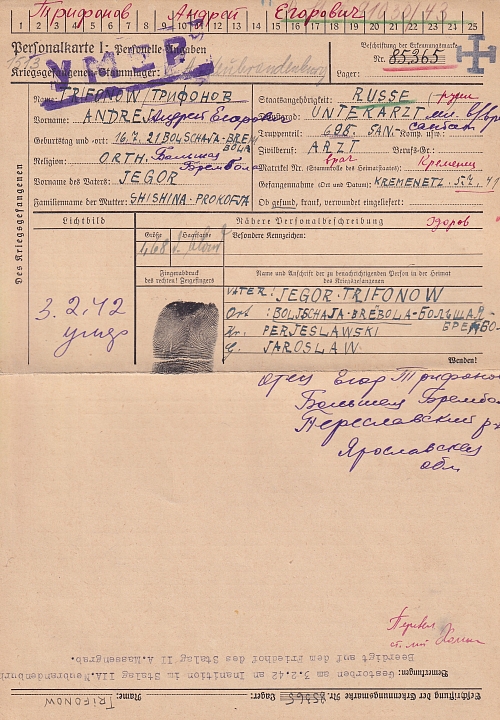 Трифонов Андрей Егорович
1 2 3 4 5 6 7 8 9 10 11 12 13 14 15 16 17 18 19 20 21 22 23 24 25
Personalkarte I: Personelle Angaben
Beschriftung der Erkennungsmarke
Kriegsgefangenen-Stammlager: Neubrandenburg
Nr. 85365
Lager:
УМЕР
Des Kriegsgefangenen
Name: TRIFONOW / ТРИФОНОВ
Staatsangehörigkeit: RUSSE
Vorname: ANDREJ Андрей Егорович
Dienstgrad: UNTERARZT
Geburtstag und -ort: 16.7.21 BOLSCHAJA-BREMBOLA
Truppenteil: 698. SAN. Komp. usw.:
Religion: ORTH. Большая Брембола
Zivilberuf: ARZT Berufs-Gr.:
врач
Matrikel Nr. (Stammrolle des Heimatstaates): Кременец
Vorname des Vaters: JEGOR
Gefangennahme (Ort und Datum): KREMENETZ
Familienname der Mutter: SHISHINA-PROKOFJA
Ob gesund, krank, verwundet eingeliefert:
Здоров
Lichtbild
Nähere Personalbeschreibung
Größe
Haarfarbe
Besondere Kennzeichen:
Fingerabdruck
des rechten! Zeigefingers
Name und Anschrift der zu benachrichtigenden Person in der Heimat
des Kriegsgefangenen
VATER: JEGOR TRIFONOW
Ort: BOLJSCHAJA-BREBOLA-БОЛЬШАЯ
БРЕМБО-
PERJESLAWSKI
JAROSLAW
Wenden!
3.2.42
отец Егор Трифонов
Большая Брембола
Переславский р-н
Ярославская
обл
Gestorben am 3.2.42 an Inanition in Stalag IIA Neubrandenburg
Beerdigt auf dem Friedhof des Stalag II A Massengrab.
Bemerkungen:
Name: TRIFONOW
Beschriftung der Erkennungsmarke Nr. 85365 Lager: